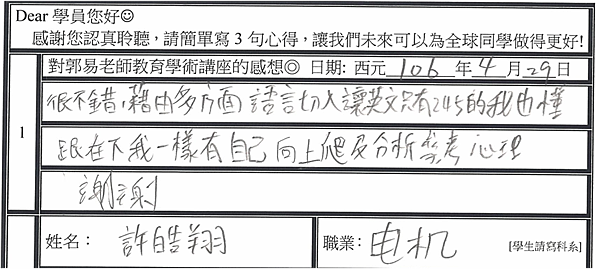 Dear 學員您好☺
感謝您認真聆聽，請簡單寫 3 句心得，讓我們未來可以為全球同學做得更好!
對郭易老師教育學術講座的感想◎ 日期: 西元 106 年 4 月 29 日
1
很不錯，藉由多方面語言切入讓英文只有245的我也懂
跟在下我一樣有自己向上爬及分析參考心理
謝謝
姓名： 許皓翔 職業： 电机 [學生請寫科系]